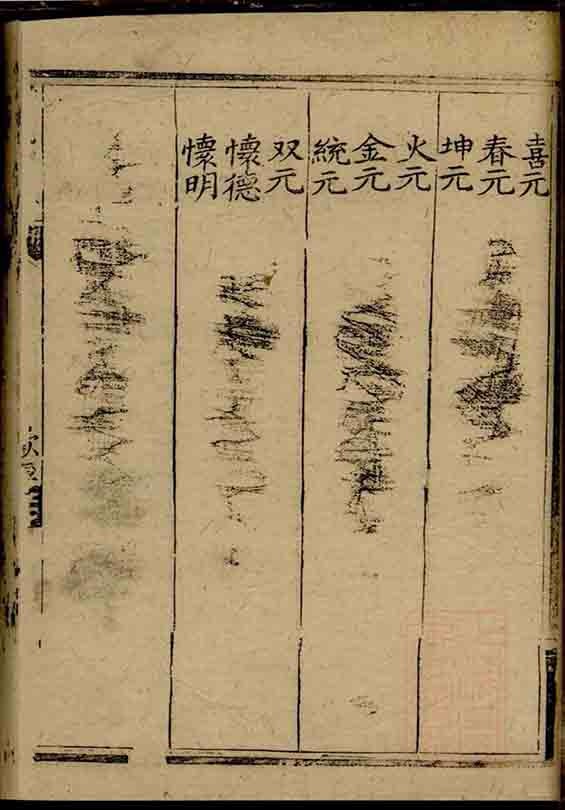 喜元
春元
坤元
火元
金元
統元
双元
懷德
懷明